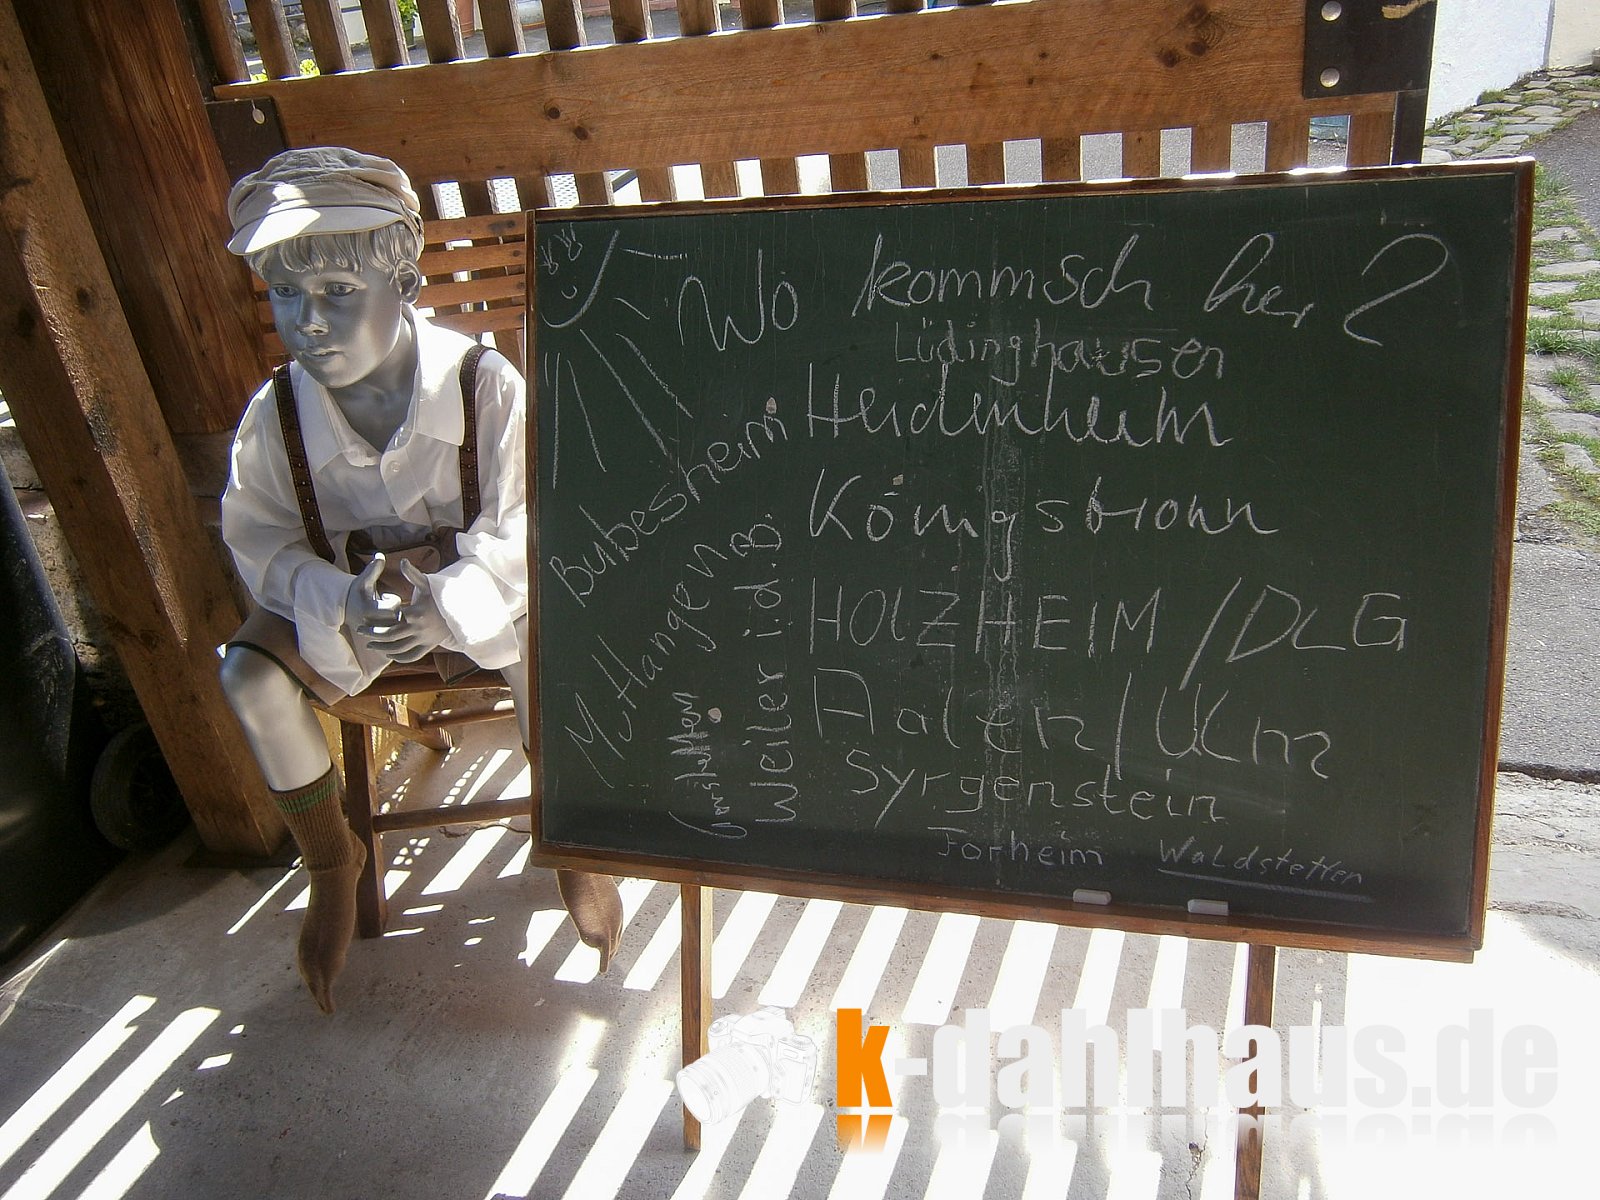 Wo kommsch her?
Lüdinghausen
Heidenheim
Königsbronn
HOLZHEIM / DLG
Aalen / Ulm
Syrgenstein
Forheim
Waldstetten
Bubesheim
Mutlangen
Weiler i.d.B.
k-dahlhaus.de